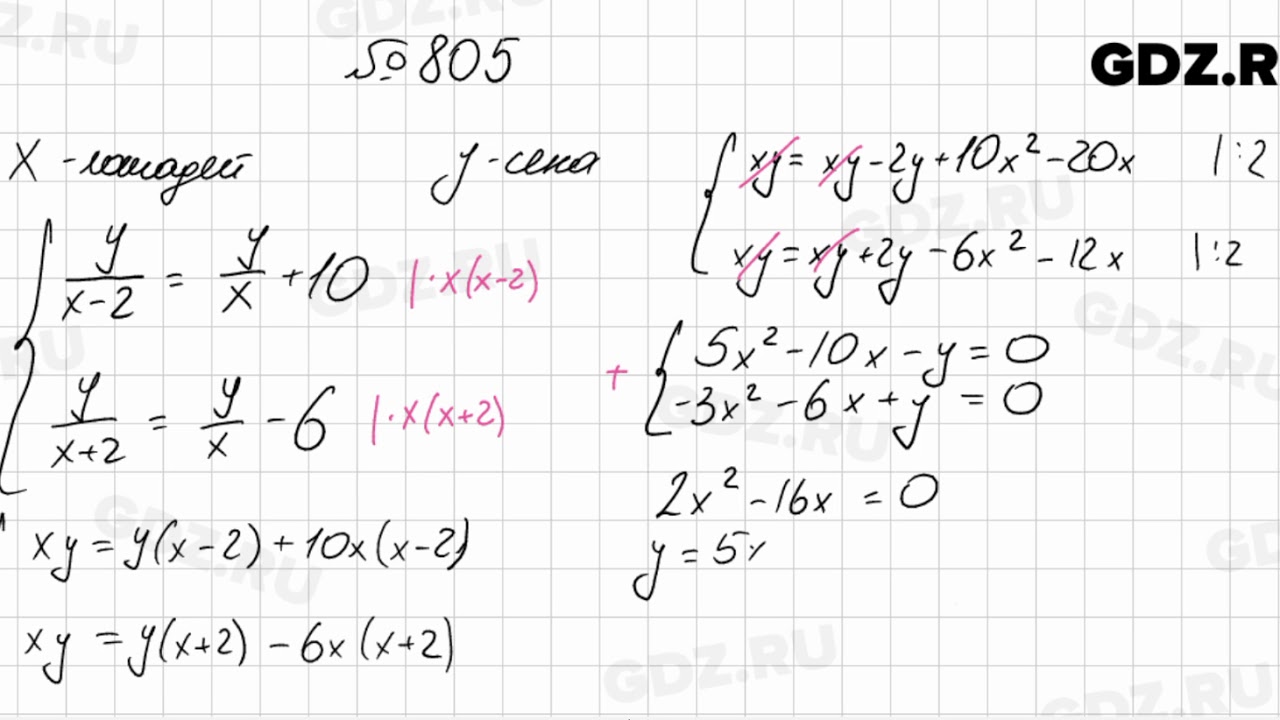 № 805
GDZ.R
x - лошадей y - сена
y/(x-2) = y/x + 10 |·x(x-2)
y/(x+2) = y/x - 6 |·x(x+2)
xy = y(x-2) + 10x(x-2)
xy = y(x+2) - 6x(x+2)
xy = xy - 2y + 10x² - 20x |:2
xy = xy + 2y - 6x² - 12x |:2
+ 5x² - 10x - y = 0
-3x² - 6x + y = 0
2x² - 16x = 0
y = 5